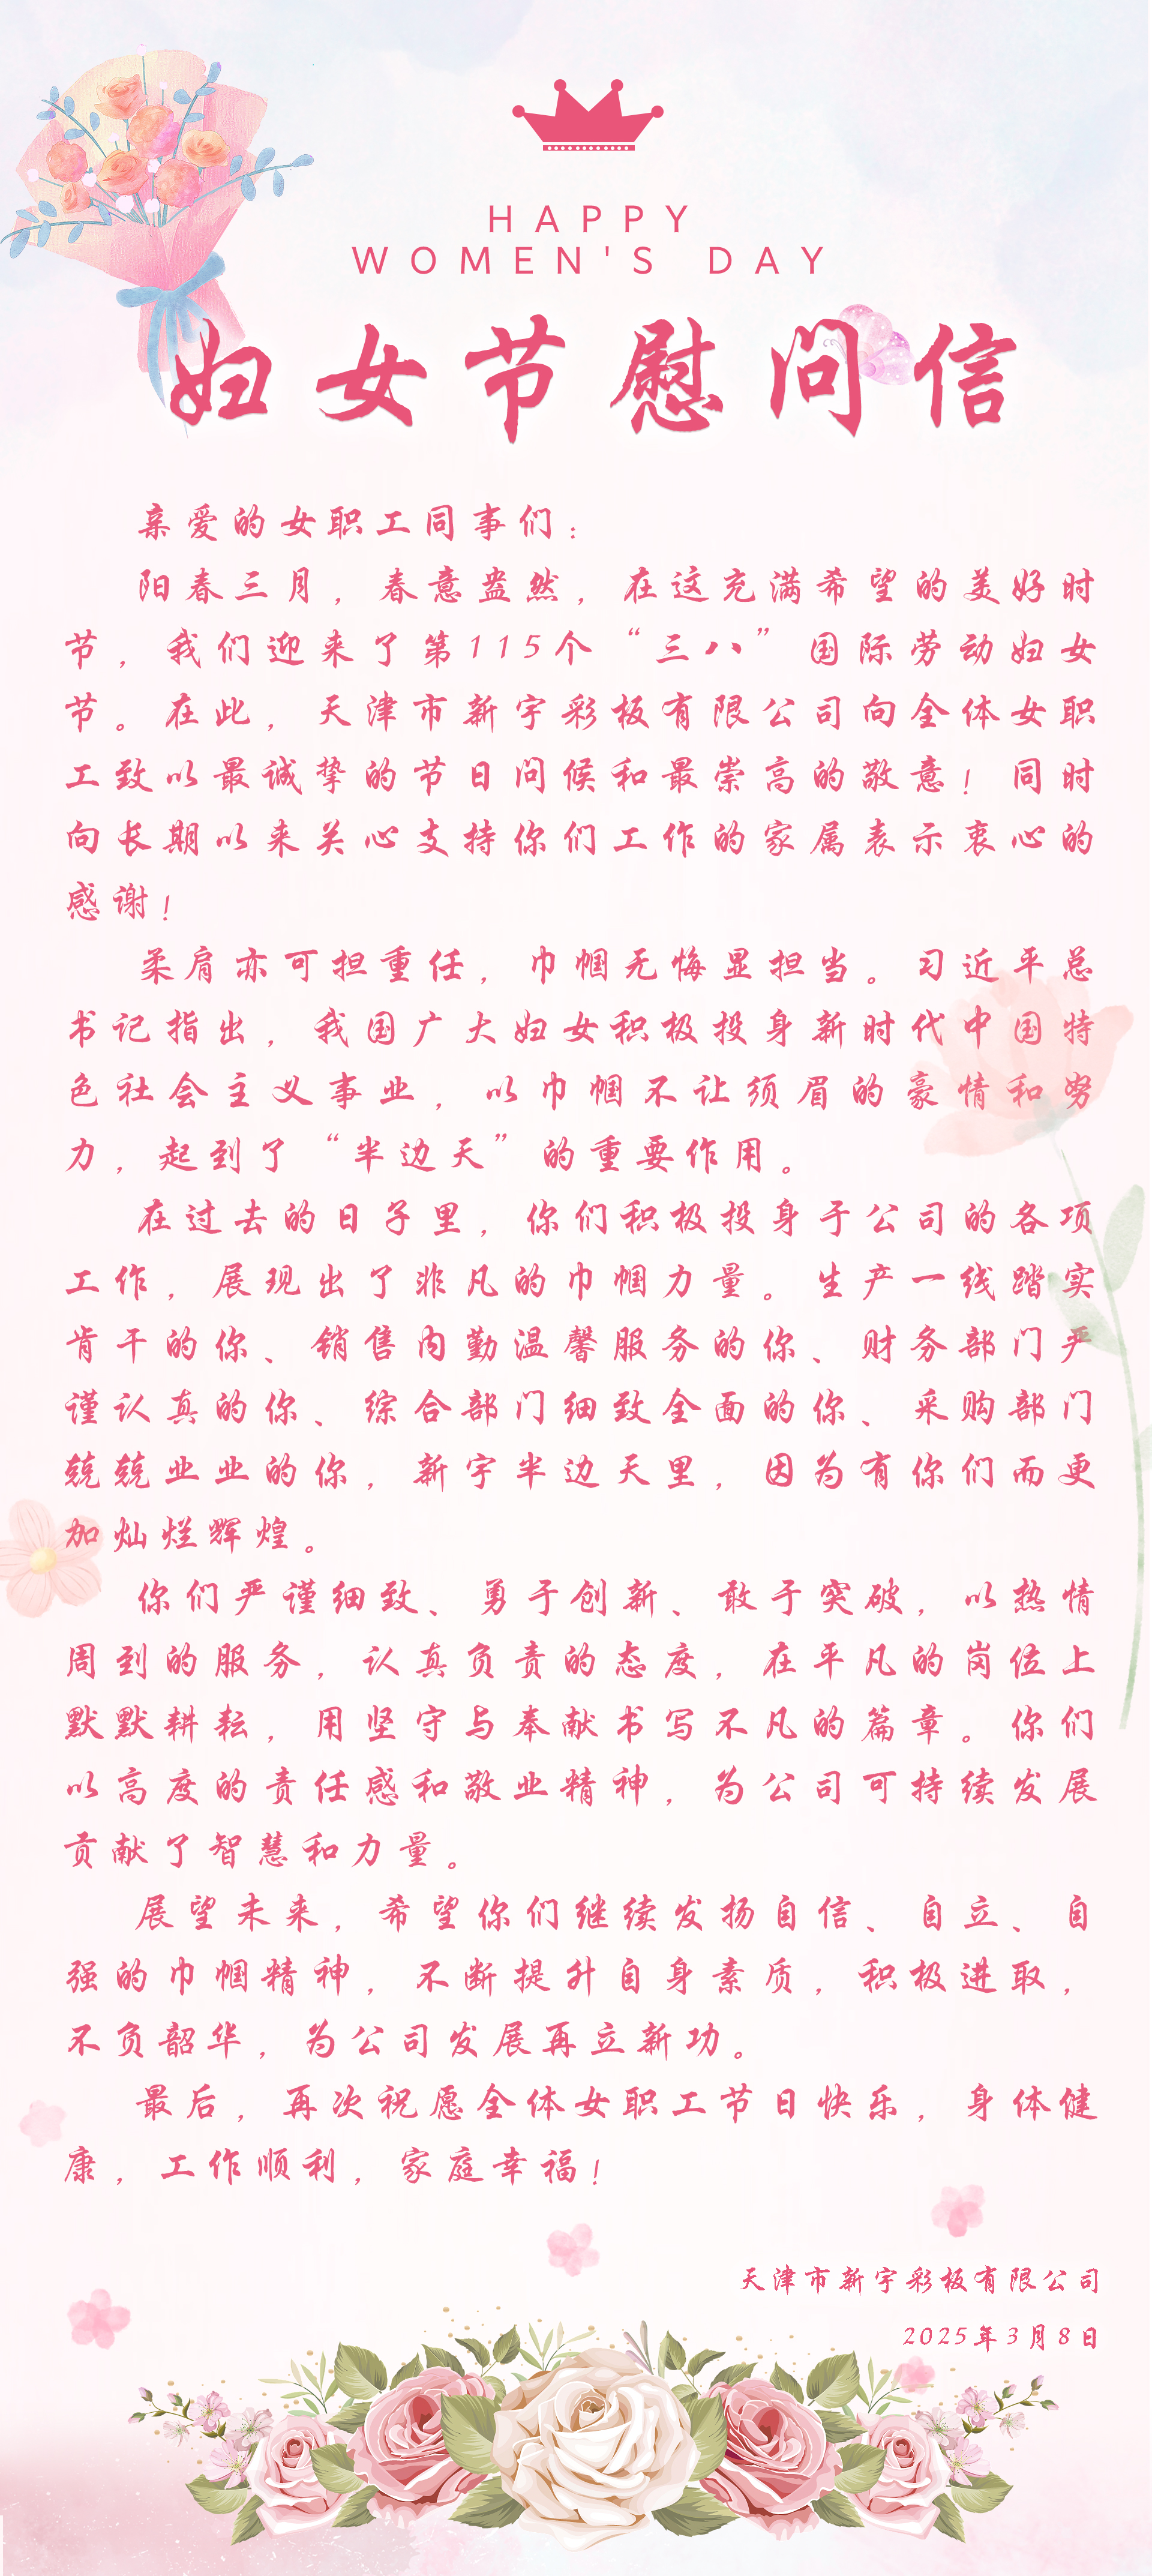 HAPPY
WOMEN'S DAY
妇女节慰问信
亲爱的女职工同事们：
阳春三月，春意盎然，在这充满希望的美好时
节，我们迎来了第115个“三八”国际劳动妇女
节。在此，天津市新宇彩板有限公司向全体女职
工致以最诚挚的节日问候和最崇高的敬意！同时
向长期以来关心支持你们工作的家属表示衷心的
感谢！
柔肩亦可担重任，巾帼无悔显担当。习近平总
书记指出，我国广大妇女积极投身新时代中国特
色社会主义事业，以巾帼不让须眉的豪情和努
力，起到了“半边天”的重要作用。
在过去的日子里，你们积极投身于公司的各项
工作，展现出了非凡的巾帼力量。生产一线踏实
肯干的你、销售内勤温馨服务的你、财务部门严
谨认真的你、综合部门细致全面的你、采购部门
兢兢业业的你，新宇半边天里，因为有你们而更
加灿烂辉煌。
你们严谨细致、勇于创新、敢于突破，以热情
周到的服务，认真负责的态度，在平凡的岗位上
默默耕耘，用坚守与奉献书写不凡的篇章。你们
以高度的责任感和敬业精神，为公司可持续发展
贡献了智慧和力量。
展望未来，希望你们继续发扬自信、自立、自
强的巾帼精神，不断提升自身素质，积极进取，
不负韶华，为公司发展再立新功。
最后，再次祝愿全体女职工节日快乐，身体健
康，工作顺利，家庭幸福！
天津市新宇彩板有限公司
2025年3月8日